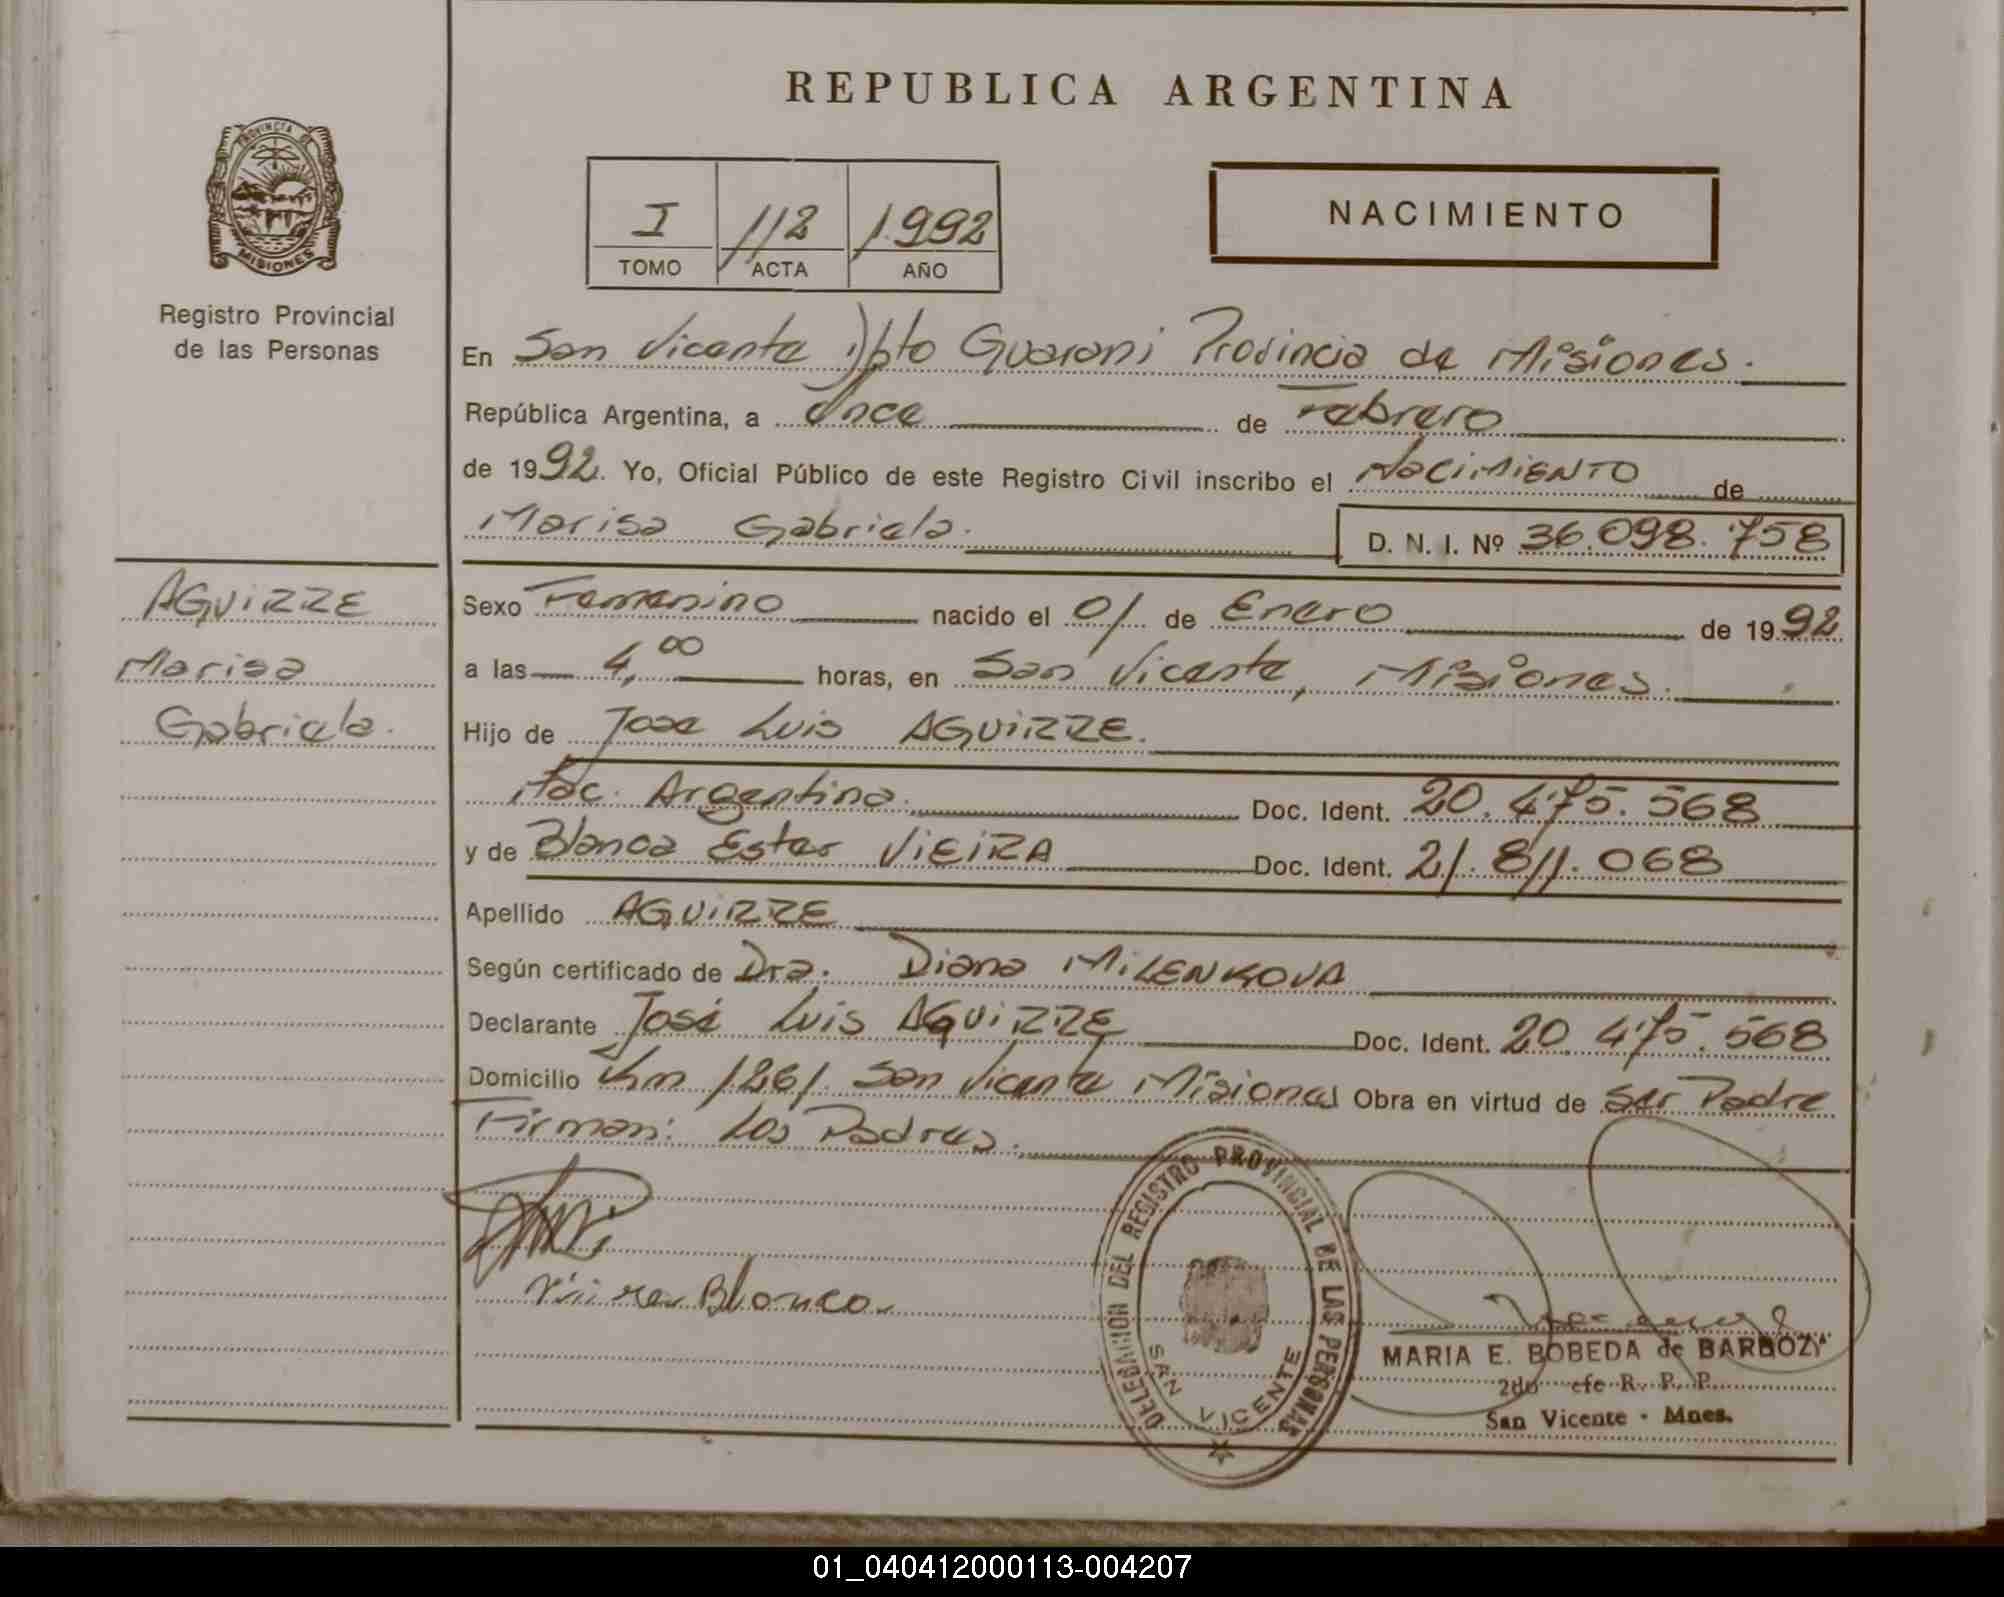 REPUBLICA ARGENTINA
PROVINCIA DE MISIONES
Registro Provincial
de las Personas
I 112 1.992
TOMO ACTA AÑO
NACIMIENTO
En San Vicente Dpto Guarani Provincia de Misiones.
República Argentina, a Once de Febrero
de 1992. Yo, Oficial Público de este Registro Civil inscribo el NaciMiENTO de
Marisa Gabriela. D. N. I. Nº 36.098.758
AGUiRRE
Marisa
Gabriela.
Sexo Femenino nacido el 01 de Enero de 1992
a las 4,00 horas, en San Vicente, Misiones.
Hijo de Jose Luis AGUiRRE.
Nac. Argentina. Doc. Ident. 20.475.568
y de Blanca Ester ViEiRA Doc. Ident. 21.811.068
Apellido AGUiRRE
Según certificado de Dra. Diana MiLENKOVA
Declarante José Luis AGUiRRE Doc. Ident. 20.475.568
Domicilio Km 1261 San Vicente Misiones Obra en virtud de Ser Padre
Firman: Los Padres.
Vieira Blanca
DELEGACION DEL REGISTRO PROVINCIAL DE LAS PERSONAS
SAN VICENTE
MARIA E. BOBEDA de BARBOZA
2do efe R. P. P.
San Vicente - Mnes.
01_040412000113-004207